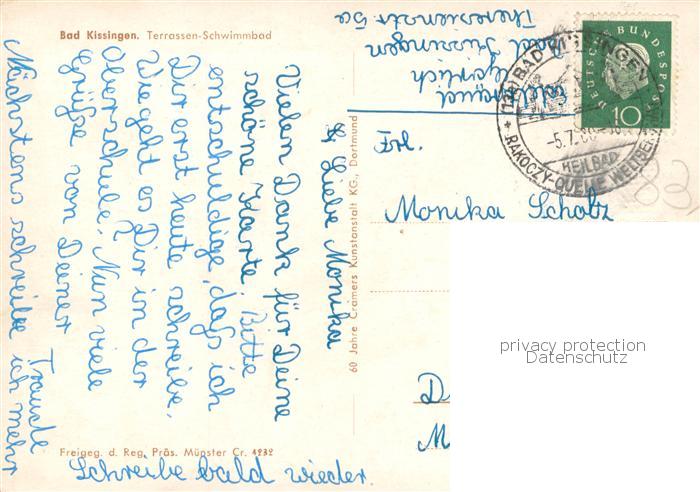 Bad Kissingen. Terrassen-Schwimmbad
Liebe Monika
Vielen Dank für Deine
schöne Karte. Bitte
entschuldige, dass ich
Dir erst heute schreibe.
Wie geht es Dir in der
Oberschule? Nun viele
Grüße von Deiner
Traudi
Nächstens schreibe ich mehr
Schreibe bald wieder.
Freigeg. d. Reg. Präs. Münster Cr. 4232
60 Jahre Cramers Kunstanstalt KG., Dortmund
Bad Kissingen
Theresienstr 5a
DEUTSCHE BUNDESPOST
10
(13a) BAD KISSINGEN
-5.7.60
HEILBAD
RAKOCZY-QUELLE
Frl.
Monika Scholz
D
M
83
privacy protection
Datenschutz